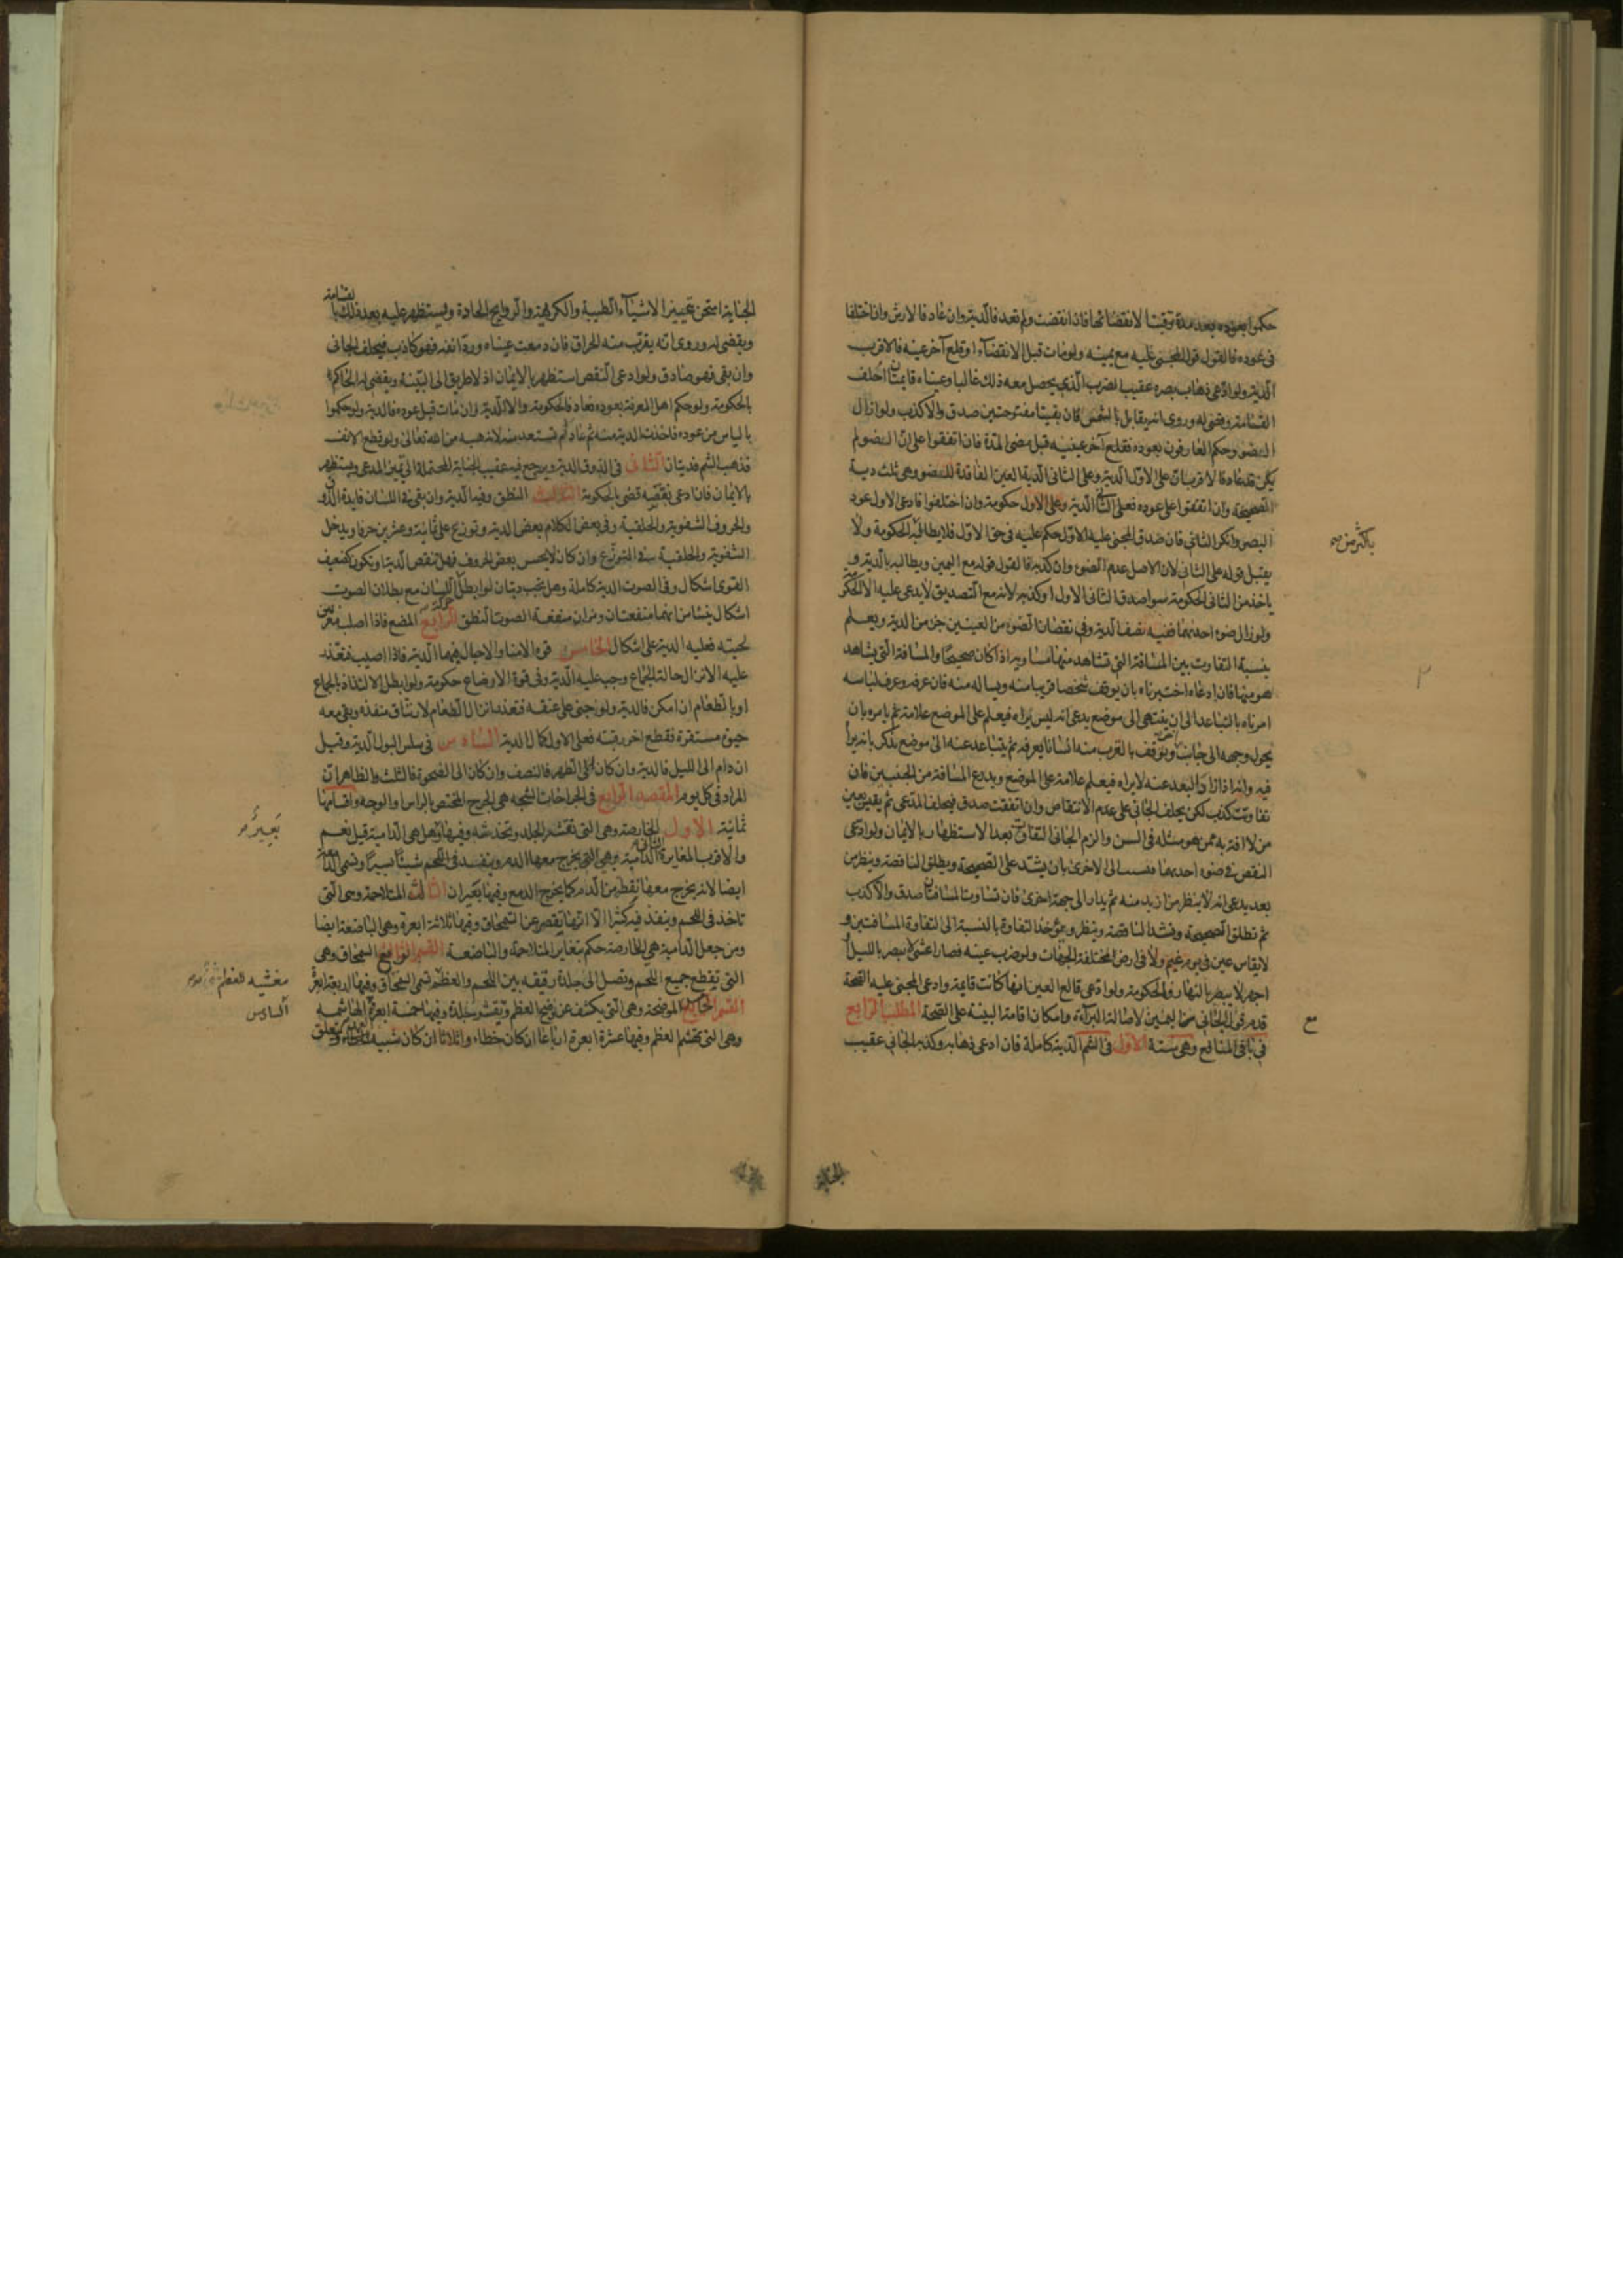 حكموا بعوده بعد مدة توقبنا لانقضائها فان انقضت ولم تعد فالدية وان عاد فالارش وان اختلفا
فى عوده فالقول قول المجنى عليه مع يمينه ولو مات قبل الانقضاء او قلع آخر عينه فالاقرب
الدية ولو ادعى ذهاب بصره عقيب الضرب الذى يحصل معه ذلك غالبا وعيناه قايمتان احلف
القسامة وقضى له وروى انه يقابل بالشمس فان بقيتا مفتوحتين صدق والا كذب ولو ازال
الضوء وحكم العارفون بعوده فقلع آخر عينيه قبل مضى المدة فان اتفقوا على ان الضوء لم
يكن قد عاد فالاقرب ان على الاول الدية وعلى الثانى الدية العين الفاقدة للضوء وهى ثلث دية
الصحيحة وان اتفقوا على عوده فعلى الثانى الدية وعلى الاول حكومة وان اختلفوا فادعى الاول عود
البصر وانكر الثانى فان صدق المجنى عليه الاول حكم عليه فى حق الاول فلا يطالبه الحكومة ولا
باكثر من صح
يقبل قوله على الثانى لان الاصل عدم الضوء وان كذبه فالقول قوله مع اليمين ويطالبه بالدية و
ياخذ من الثانى الحكومة سوا صدق الثانى الاول او كذبه لانه مع التصديق لا يدعى عليه الا الحكومة
ولو زال ضوء احديهما ففيه نصف الدية وفى نقصان الضوء من العينين جزء من الدية ويعلم
بنسبة التفاوت بين المسافة التى تشاهد منها مساويه اذا كان صحيحا والمسافة التى يشاهد
هو منها فان ادعاه اختبرناه بان يوقف شخصا قريبا منه ويساله منه فان عرفه وعرف لباسه
امرناه بالتباعد الى ان ينتهى الى موضع يدعى انه ليس يراه فيعلم على الموضع علامة ثم يامره بان
يحول وجهه الى جانب آخر ويوقف بالقرب منه انسانا يعرفه ثم يتباعد عنه الى موضع يذكر بانه يراه
فيه وانه اذا زاد البعد عنه لا يراه فيعلم علامة على الموضع ويذرع المسافة من الجنبين فان
تفاوتت كذب لكن يحلف الجانى على عدم الانتقاص وان اتفقت صدق فيحلف المدعى ثم يقيس بعين
من لا افة به ممن هو مثله فى السن والزم الجانى التفاوت بعد الاستظهار بالايمان ولو ادعى
النقص فى ضوء احديهما قيست الى الاخرى بان يشد على الصحيحة ويطلق الناقصة وينظر من
بعد يدعى انه لا ينظر من ازيد منه ثم يدار الى جهة اخرى فان تساوت المسافتان صدق والا كذب
ثم تطلق الصحيحة وتشد الناقصة وينظر ويؤخذ التفاوة بالنسبة الى التفاوة المسافتين و
لا يقاس عين فى يوم غيم ولا فى ارض مختلفة الجهات ولو ضرب عينه فصار اعشى لا يبصر بالليل او
اجهر لا يبصر بالنهار فالحكومة ولو ادعى قالع العين انها كانت قايمة وادعى المجنى عليه الصحة
قدم قول الجانى مع اليمين لاصالة البراءة وامكان اقامة البينة على الصحة المطلب الرابع
فى باقى المنافع وهى ستة الاول فى الشم الدية كاملة فان ادعى ذهابه وكذبه الجانى عقيب
الجناية
الجناية امتحن بتمييز الاشياء الطيبة والكريهة والروايح الحادة ويستظهر عليه بعد ذلك بالقسامة
ويقضى له وروى انه يقرب منه الحراق فان دمعت عيناه ورد انفه فهو كاذب فيحلف الجانى
وان بقى فهو صادق ولو ادعى النقص استظهر بالايمان اذ لا طريق الى البينة ويقضى له الحاكم
بالحكومة ولو حكم اهل المعرفة بعوده فعاد فالحكومة والا الدية وان مات قبل عوده فالدية ولو حكموا
بالياس من عوده فاخذت الدية منه ثم عاد لم تستعد منه لانه هبة من الله تعالى ولو قطع الانف
فذهب الشم فديتان الثانى فى الذوق الدية ويرجع فيه عقيب الجناية المحتملة الى يمين المدعى ويستظهر
بالايمان فان ادعى نقصه قضى بالحكومة الثالث النطق وفيه الدية وان بقى فى اللسان فايدة الذوق
والحروف الشفوية والحلقية وفى بعض الكلام بعض الدية وتوزع على ثمانية وعشرين حرفا ويدخل
الشفوية والحلقية فى التوزيع وان كان لا يحسن بعض الحروف فهل تنقص الدية او يكون كضعيف
القوى اشكال وفى الصوت الدية كاملة وهل يجب ديتان لو ابطل اللسان مع بطلان الصوت
اشكال ينشا من انهما منفعتان ومن ان منفعة الصوت النطق الرابع المضغ فاذا اصلب مغرس
لحيته فعليه الدية على اشكال الخامس قوة الامناء والاحبال فيهما الدية فاذا اصيب فتعذر
عليه الانزال حالة الجماع وجب عليه الدية وفى قوة الارضاع حكومة ولو ابطل الالتذاذ بالجماع
او بالطعام ان امكن فالدية ولو جنى على عنقه فتعذر انزال الطعام لارتتاق منفذه وبقى معه
حيوة مستقرة فقطع اخر رقبته فعلى الاول كمال الدية السادس فى سلس البول الدية وقيل
ان دام الى الليل فالدية وان كان الى الظهر فالنصف وان كان الى الضحوة فالثلث والظاهر ان
المراد فى كل يوم المقصد الرابع فى الجراحات الشجة هى الجرح المختص بالراس والوجه واقسامها
ثمانية الاول الخارصة وهى التى تقشر الجلد وتخدشه وفيها وهل هى الدامية قيل نعم
بعير
والاقرب المغايرة الثانى الدامية وهى التى يخرج معها الدم وينفذ فى اللحم شيئا يسيرا وتسمى الدامعة
ايضا لانه يخرج معها نقطة من الدم كما يخرج الدمع وفيها بعيران الثالث المتلاحمة وهى التى
تاخذ فى اللحم وينفذ فيه كثيرا الا انها يقصر عن السمحاق وفيها ثلاثة ابعرة وهى الباضعة ايضا
ومن جعل الدامية هى الخارصة حكم بتغاير المتلاحمة والباضعة القسم الرابع السمحاق وهى
التى يقطع جميع اللحم وتصل الى جلدة رقيقة بين اللحم والعظم تسمى السمحاق وفيها اربعة ابعرة
مغشيه للعظم
القسم الخامس الموضحة وهى التى يكشف عن وضح العظم وتقشر جلده وفيها خمسة ابعرة الهاشمه
السادس
وهى التى يهشم العظم وفيها عشرة ابعرة ارباعا ان كان خطاء واثلاثا ان كان شبيه